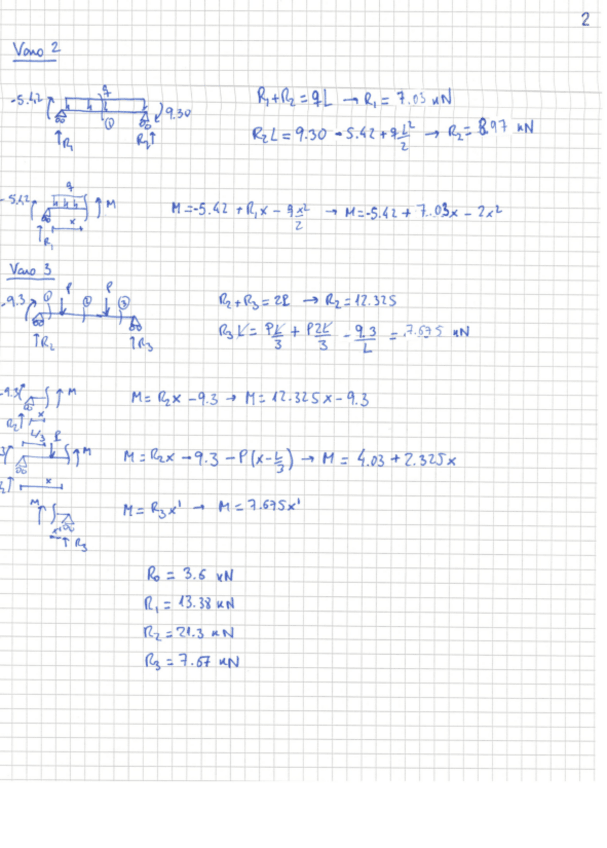 2
Vano 2
q
-5.42
9.30
1
R₁
R₂
R₁+R₂ = qL → R₁ = 7.03 kN
R₂L = 9.30 - 5.42 + qL²/2 → R₂ = 8.97 kN
q
-5.42
M
x
R₁
M = -5.42 + R₁x - qx²/2 → M = -5.42 + 7.03x - 2x²
Vano 3
P P
-9.3
1 2 3
R₂ R₃
R₂+R₃ = 2P → R₂ = 12.325
R₃L = PL/3 + P2L/3 - 9.3/L = 7.675 kN
-9.3
M
x
R₂
M = R₂x - 9.3 → M = 12.325x - 9.3
L/3 P
M
x
M = R₂x - 9.3 - P(x - L/3) → M = 4.03 + 2.325x
M
x'
R₃
M = R₃x' → M = 7.675x'
R₀ = 3.6 kN
R₁ = 13.38 kN
R₂ = 21.3 kN
R₃ = 7.67 kN